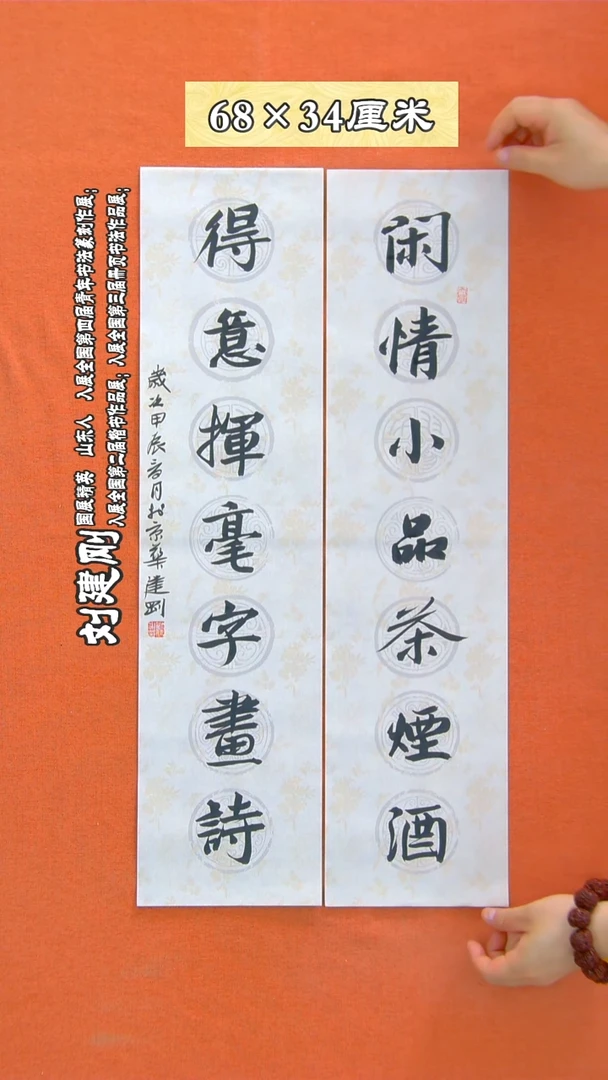 68×34厘米
闲情小品茶煙酒
得意揮毫字畫詩
歲次甲辰月於京華建剛
刘建刚
国展精英 山东人 入展全国第四届青年书法篆刻作展；
入展全国第二届楷书作品展；入展全国第三届册页书法作品展；